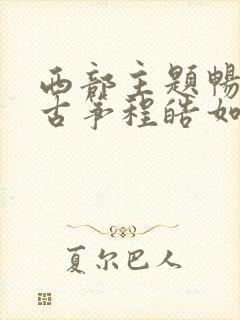 西部主题畅
古筝程皓如
夏尔巴人